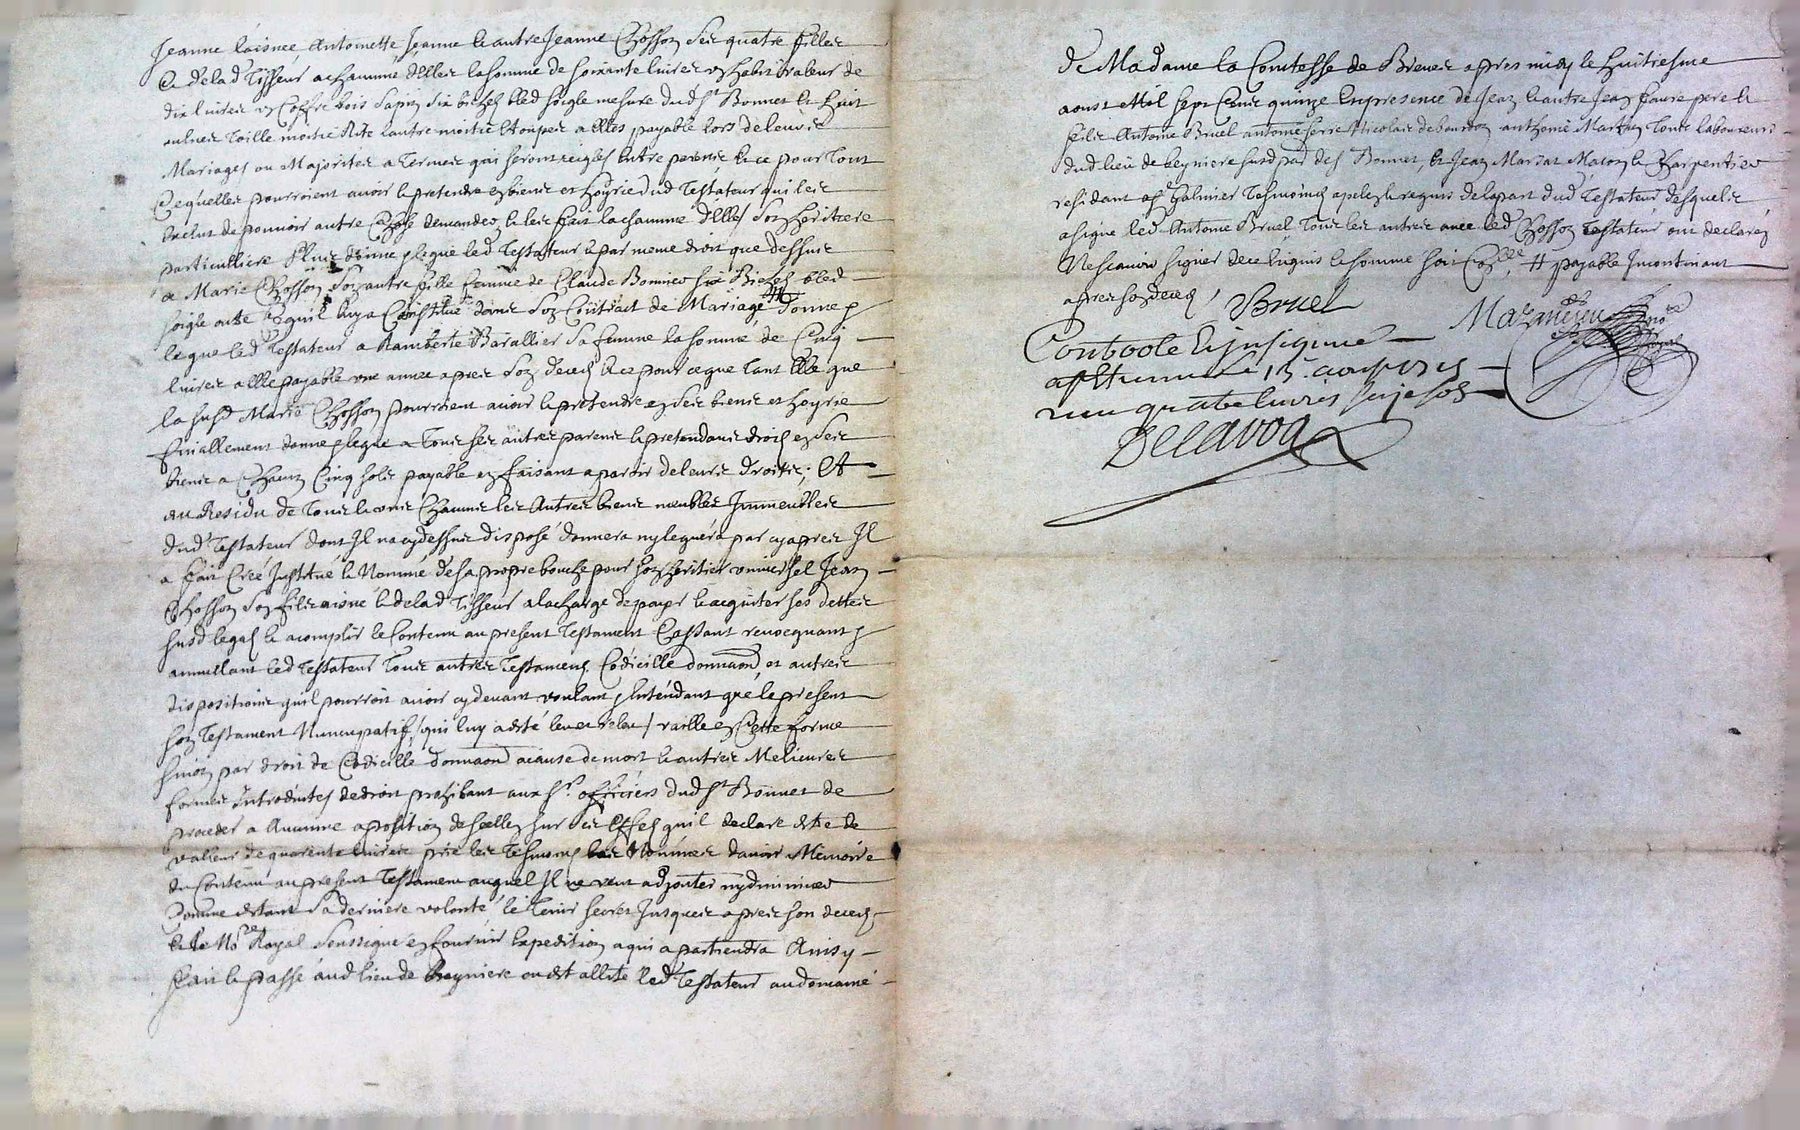 Jeanne laisnée Antoinette Jeanne & autre Jeanne Chosson ses quatre filles
& de lad Tisseur a chacune delles la somme de soixante livres un habit valeur de
dix livres un Coffre bois sapin six bichez bled soigle mesure dud St Bonnet & huit
aulnes Toille moitié Rite lautre moitié Etoupes a elles payable lors de leurs
Mariages ou Majorités a Termes qui seront reiglés Entre parens & ce pour Tout
Cequelles pourroient avoir & pretendre en biens et hoyrie dud Testateur qui les
Exclut de pouvoir autre Chose demander & les fait lachacune delles son heritiere
particulliere Plus donne & legue led Testateur & par meme droit que dessus
a Marie Chosson son autre fille femme de Claude Bonnier six Bichez bled
soigle outre ce quil luy a Constitué dans son Contrait de Mariage # donne &
legue led Testateur a Ramberte Barallier sa femme la somme de Cinq
livres a elle payable une année apres son deced & ce pour ce que tant Elle que
la susd Marie Chosson pourroient avoir & pretendre en ses biens et hoyrie
finallement donne & legue a Tous ses autres parens & pretendans droit en ses
biens a Chacun Cinq sols payable en faisant aparoir de leurs droits; Et
au Residu de Tous & uns Chacuns les Autres biens meubles Immeubles
dud Testateur dont Il na cy dessus disposé donnera ny leguera par cy apres Il
a fait Créé Institué & Nommé de sa propre bouche pour son heritier universel Jean
Chosson son fils aisné & de lad Tisseur a la charge de payer & acquiter ses dettes
susd legats & acomplir le Contenu au present Testament Cassant revocquant &
annullant led Testateur Tous autres Testaments Codicille donnaon et autres
dispositions quil pourroit avoir cy devant voulant & Entendant que le present
son Testament Nuncupatif / qui luy a esté leu et releu / vaille en Cette forme
sinon par droit de Codicille donnaon a cause de mort & autres Melieures
formes introduites de droit prohibant aux Srs officiers dud St Bonnet de
proceder a Aucune aposition de scellez sur ses Effets quil declare estre de
valleur de quarente livres prie les Tesmoins bas Nommes davoir Memoire
du Contenu au present Testament auquel Il ne veut adjouter ny diminuer
Comme estant sa derniere volonté le Tenir secret Jusques apres son deced
& le Nore Royal soussigné en fournir Expedition a qui apartiendra Ainsy
fait & passé aud lieu de Reyniere ou est allité led Testateur au domaine
de Madame la Comtesse de Breves apres midy le huitiesme
aoust Mil sept Cents quinze En presence de Jean & autre Jean faure pere &
fils Antoine Bruel antoine ferre Nicolas debourdon anthoine Marthey Tous laboureurs
dud lieu de Reyniere susd parr de St Bonnet, & Jean Marsat Macon & Charpentier
residant a St Galmier Tesmoings apelez & requis de la part dud Testateur desquels
a signé led Antoine Bruel Tous les autres avec led Chosson Testateur ont declarez
Ne scavoir signer de ce Enquis & somme soit Conlle, # payable Incontinant
apres son deced
Bruel
Mazenieu nore Royal
Controole & insinué
a St 13. aoust 1715
reçu quatre livres seize sols
Delavoa